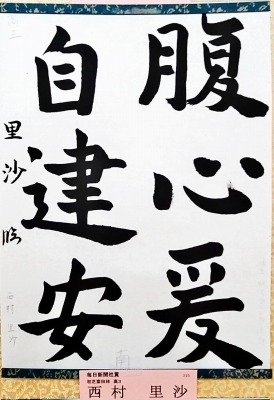 腹心爰
自建安
里沙臨
高三
西村里沙
毎日新聞社賞
西村 里沙